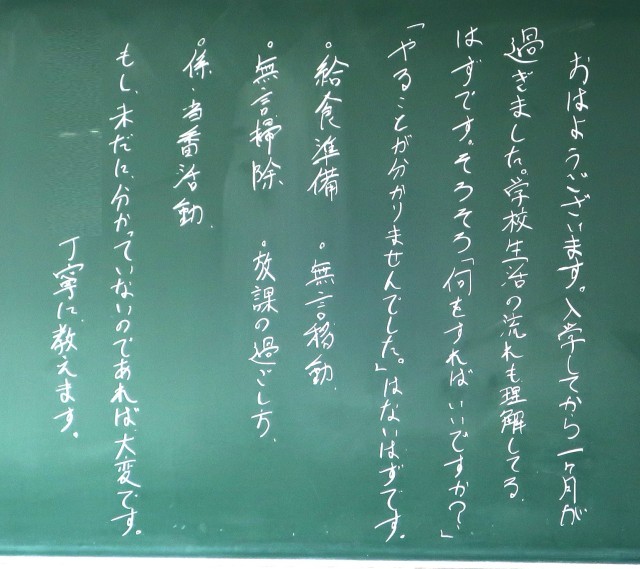 おはようございます。入学してから一ヶ月が
過ぎました。学校生活の流れも理解してる
はずです。そろそろ「何をすればいいですか？」
「やることが分かりませんでした。」はないはずです。
・給食準備　・無言移動
・無言掃除　・放課の過ごし方
・係・当番活動
もし、未だに、分かっていないのであれば、大変です。
丁寧に、教えます。